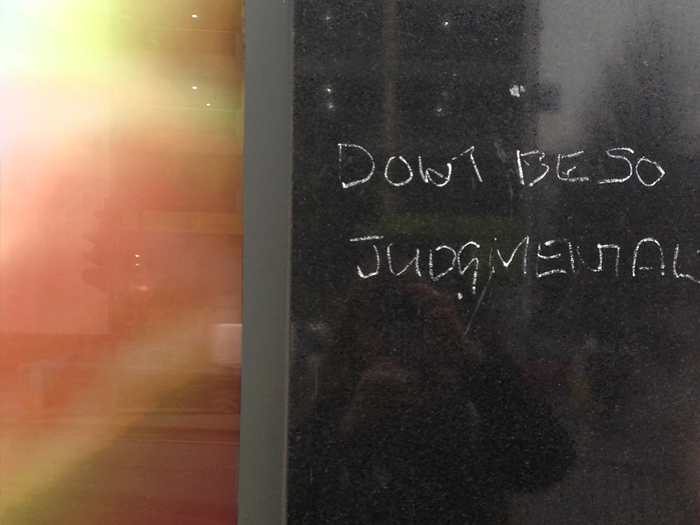 DONT BE SO
JUDGMENTAL